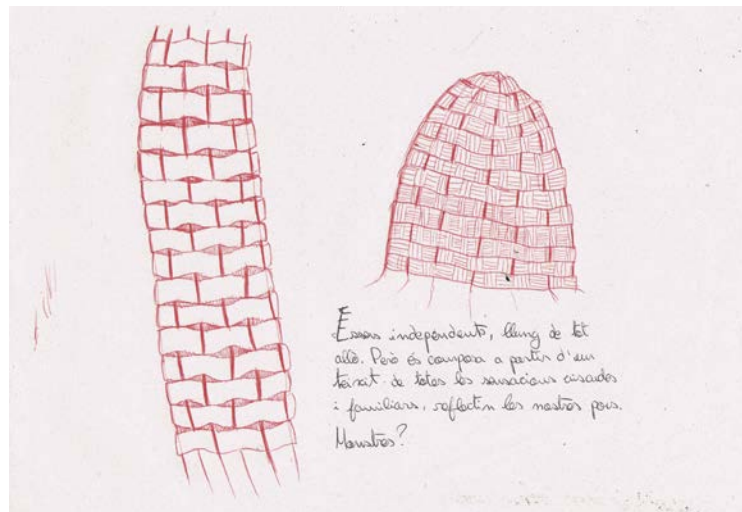 Essers independents, lluny de tot
allò. Però és composa a partir d'un
teixit de totes les sensacions casades
i familiars, reflectin les nostres pors.
Monstres?